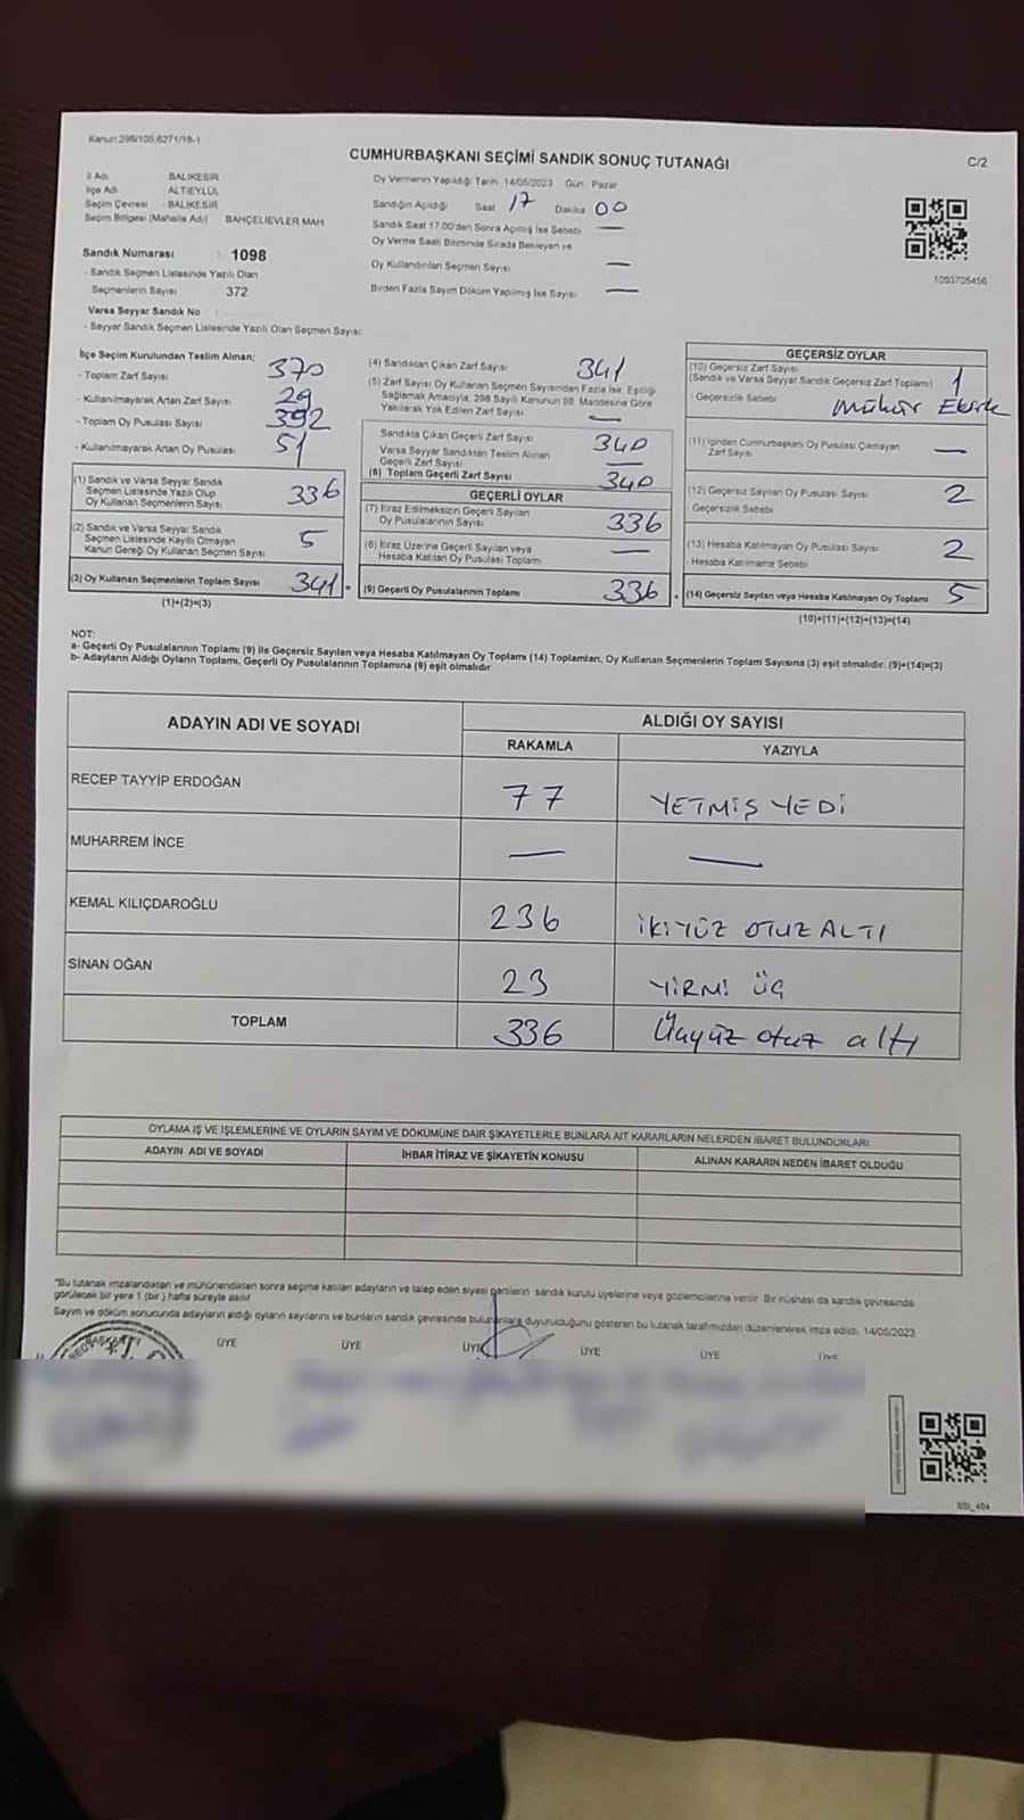 Kanun:298/105,6271/18-1
CUMHURBAŞKANI SEÇİMİ SANDIK SONUÇ TUTANAĞI
C/2
İl Adı BALIKESİR
İlçe Adı ALTIEYLÜL
Seçim Çevresi : BALIKESİR
Seçim Bölgesi (Mahalle Adı) BAHÇELİEVLER MAH
Sandık Numarası : 1098
- Sandık Seçmen Listesinde Yazılı Olan
Seçmenlerin Sayısı 372
Varsa Seyyar Sandık No
- Seyyar Sandık Seçmen Listesinde Yazılı Olan Seçmen Sayısı:
Oy Vermenin Yapıldığı Tarih: 14/05/2023 Gün: Pazar
Sandığın Açıldığı Saat 17 Dakika 00
Sandık Saat 17.00'den Sonra Açılmış İse Sebebi —
Oy Verme Saati Bitiminde Sırada Bekleyen ve
Oy Kullandırılan Seçmen Sayısı —
Birden Fazla Sayım Döküm Yapılmış İse Sayısı —
1093705456
İlçe Seçim Kurulundan Teslim Alınan;
- Toplam Zarf Sayısı 370
- Kullanılmayarak Artan Zarf Sayısı 29
- Toplam Oy Pusulası Sayısı 392
- Kullanılmayarak Artan Oy Pusulası 51
(1) Sandık ve Varsa Seyyar Sandık
Seçmen Listesinde Yazılı Olup
Oy Kullanan Seçmenlerin Sayısı 336
(2) Sandık ve Varsa Seyyar Sandık
Seçmen Listesinde Kayıtlı Olmayan
Kanun Gereği Oy Kullanan Seçmen Sayısı 5
(3) Oy Kullanan Seçmenlerin Toplam Sayısı 341
(1)+(2)=(3)
(4) Sandıktan Çıkan Zarf Sayısı 341
(5) Zarf Sayısı Oy Kullanan Seçmen Sayısından Fazla İse, Eşitliği
Sağlamak Amacıyla, 298 Sayılı Kanunun 98. Maddesine Göre
Yakılarak Yok Edilen Zarf Sayısı —
Sandıkta Çıkan Geçerli Zarf Sayısı 340
Varsa Seyyar Sandıktan Teslim Alınan
Geçerli Zarf Sayısı —
(6) Toplam Geçerli Zarf Sayısı 340
GEÇERLİ OYLAR
(7) İtiraz Edilmeksizin Geçerli Sayılan
Oy Pusulalarının Sayısı 336
(8) İtiraz Üzerine Geçerli Sayılan veya
Hesaba Katılan Oy Pusulası Toplamı —
(9) Geçerli Oy Pusulalarının Toplamı 336
GEÇERSİZ OYLAR
(10) Geçersiz Zarf Sayısı
(Sandık ve Varsa Seyyar Sandık Geçersiz Zarf Toplamı) 1
- Geçersizlik Sebebi Mühür Eksik
(11) İçinden Cumhurbaşkanı Oy Pusulası Çıkmayan
Zarf Sayısı —
(12) Geçersiz Sayılan Oy Pusulası Sayısı 2
Geçersizlik Sebebi
(13) Hesaba Katılmayan Oy Pusulası Sayısı 2
- Hesaba Katılmama Sebebi
(14) Geçersiz Sayılan veya Hesaba Katılmayan Oy Toplamı 5
(10)+(11)+(12)+(13)=(14)
NOT:
a- Geçerli Oy Pusulalarının Toplamı (9) ile Geçersiz Sayılan veya Hesaba Katılmayan Oy Toplamı (14) Toplamları, Oy Kullanan Seçmenlerin Toplam Sayısına (3) eşit olmalıdır. (9)+(14)=(3)
b- Adayların Aldığı Oyların Toplamı, Geçerli Oy Pusulalarının Toplamına (9) eşit olmalıdır
ADAYIN ADI VE SOYADI ALDIĞI OY SAYISI
RAKAMLA YAZIYLA
RECEP TAYYİP ERDOĞAN 77 YETMİŞ YEDİ
MUHARREM İNCE — —
KEMAL KILIÇDAROĞLU 236 İKİYÜZ OTUZ ALTI
SİNAN OĞAN 23 YİRMİ ÜÇ
TOPLAM 336 Üçyüz otuz altı
OYLAMA İŞ VE İŞLEMLERİNE VE OYLARIN SAYIM VE DÖKÜMÜNE DAİR ŞİKAYETLERLE BUNLARA AİT KARARLARIN NELERDEN İBARET BULUNDUKLARI
ADAYIN ADI VE SOYADI İHBAR İTİRAZ VE ŞİKAYETİN KONUSU ALINAN KARARIN NEDEN İBARET OLDUĞU
"Bu tutanak imzalandıktan ve mühürlendikten sonra seçime katılan adayların ve talep eden siyasi partilerin sandık kurulu üyelerine veya gözlemcilerine verilir. Bir nüshası da sandık çevresinde
görülecek bir yere 1 (bir) hafta süreyle asılır
Sayım ve döküm sonucunda adayların aldığı oyların sayılarını ve bunların sandık çevresinde bulunanlara duyurulduğunu gösteren bu tutanak tarafımızdan düzenlenerek imza edildi. 14/05/2023
ÜYE ÜYE ÜYE ÜYE ÜYE ÜYE